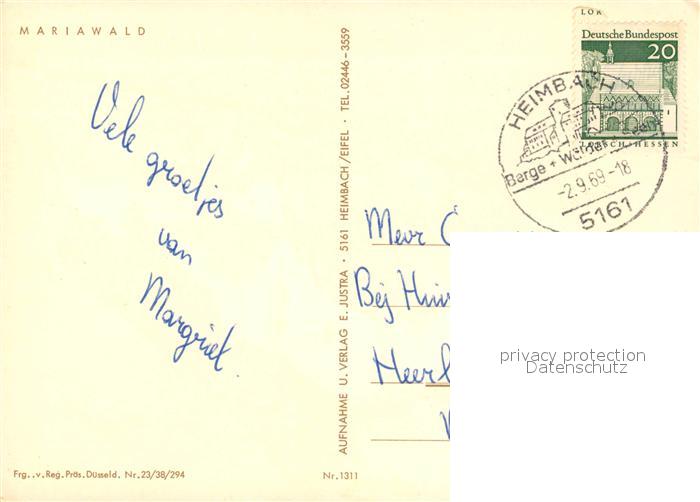 MARIAWALD
Vele groetjes
van
Margriet.
AUFNAHME U. VERLAG E. JUSTRA · 5161 HEIMBACH/EIFEL · TEL. 02446-3559
LOR
Deutsche Bundespost
20
LORSCH·HESSEN
HEIMBACH
Berge + Wälder +
-2.9.69-18
5161
Mevr
Bej
Heerl
privacy protection
Datenschutz
Frg..v.Reg.Präs.Düsseld. Nr.23/38/294
Nr.1311